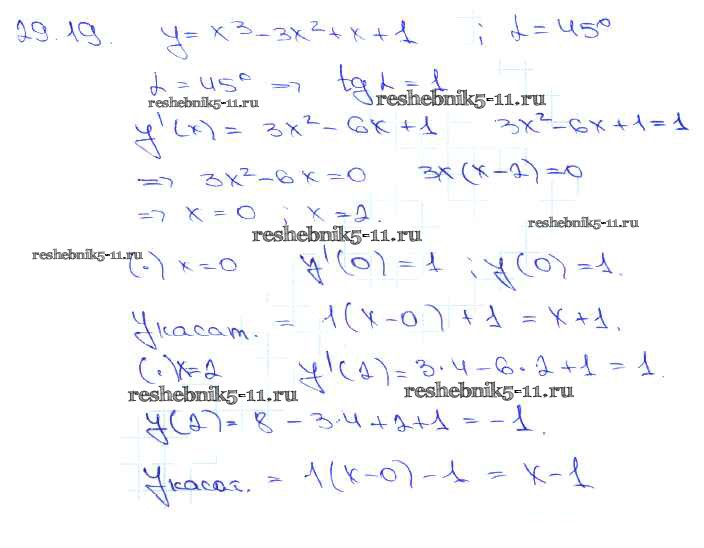 29.19. y = x³ - 3x² + x + 1 ; α = 45°
α = 45° => tg α = 1
reshebnik5-11.ru reshebnik5-11.ru
y'(x) = 3x² - 6x + 1 3x² - 6x + 1 = 1
=> 3x² - 6x = 0 3x(x - 2) = 0
=> x = 0 ; x = 2.
reshebnik5-11.ru reshebnik5-11.ru
reshebnik5-11.ru
(·) x = 0 y'(0) = 1 ; y(0) = 1.
yкасат. = 1(x - 0) + 1 = x + 1.
(·) x = 2 y'(2) = 3·4 - 6·2 + 1 = 1.
reshebnik5-11.ru reshebnik5-11.ru
y(2) = 8 - 3·4 + 2 + 1 = -1.
yкасат. = 1(x - 0) - 1 = x - 1